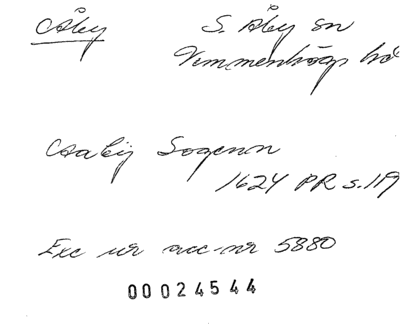 Åby S. Åby sn
Vemmenhögs hd
Aabÿ Sogenn
1624 PR s. 119
Exc ur acc-nr 5880
00024544